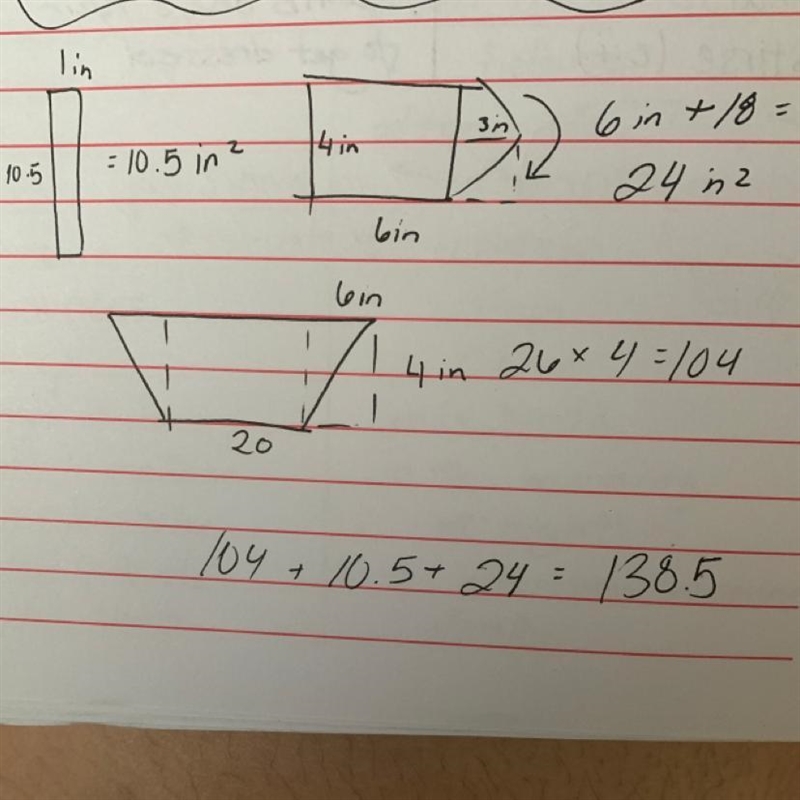 1in
10.5
= 10.5 in²
4in
3in
6in
6in + 18 =
24 in²
6in
4 in
20
26 × 4 = 104
104 + 10.5 + 24 = 138.5